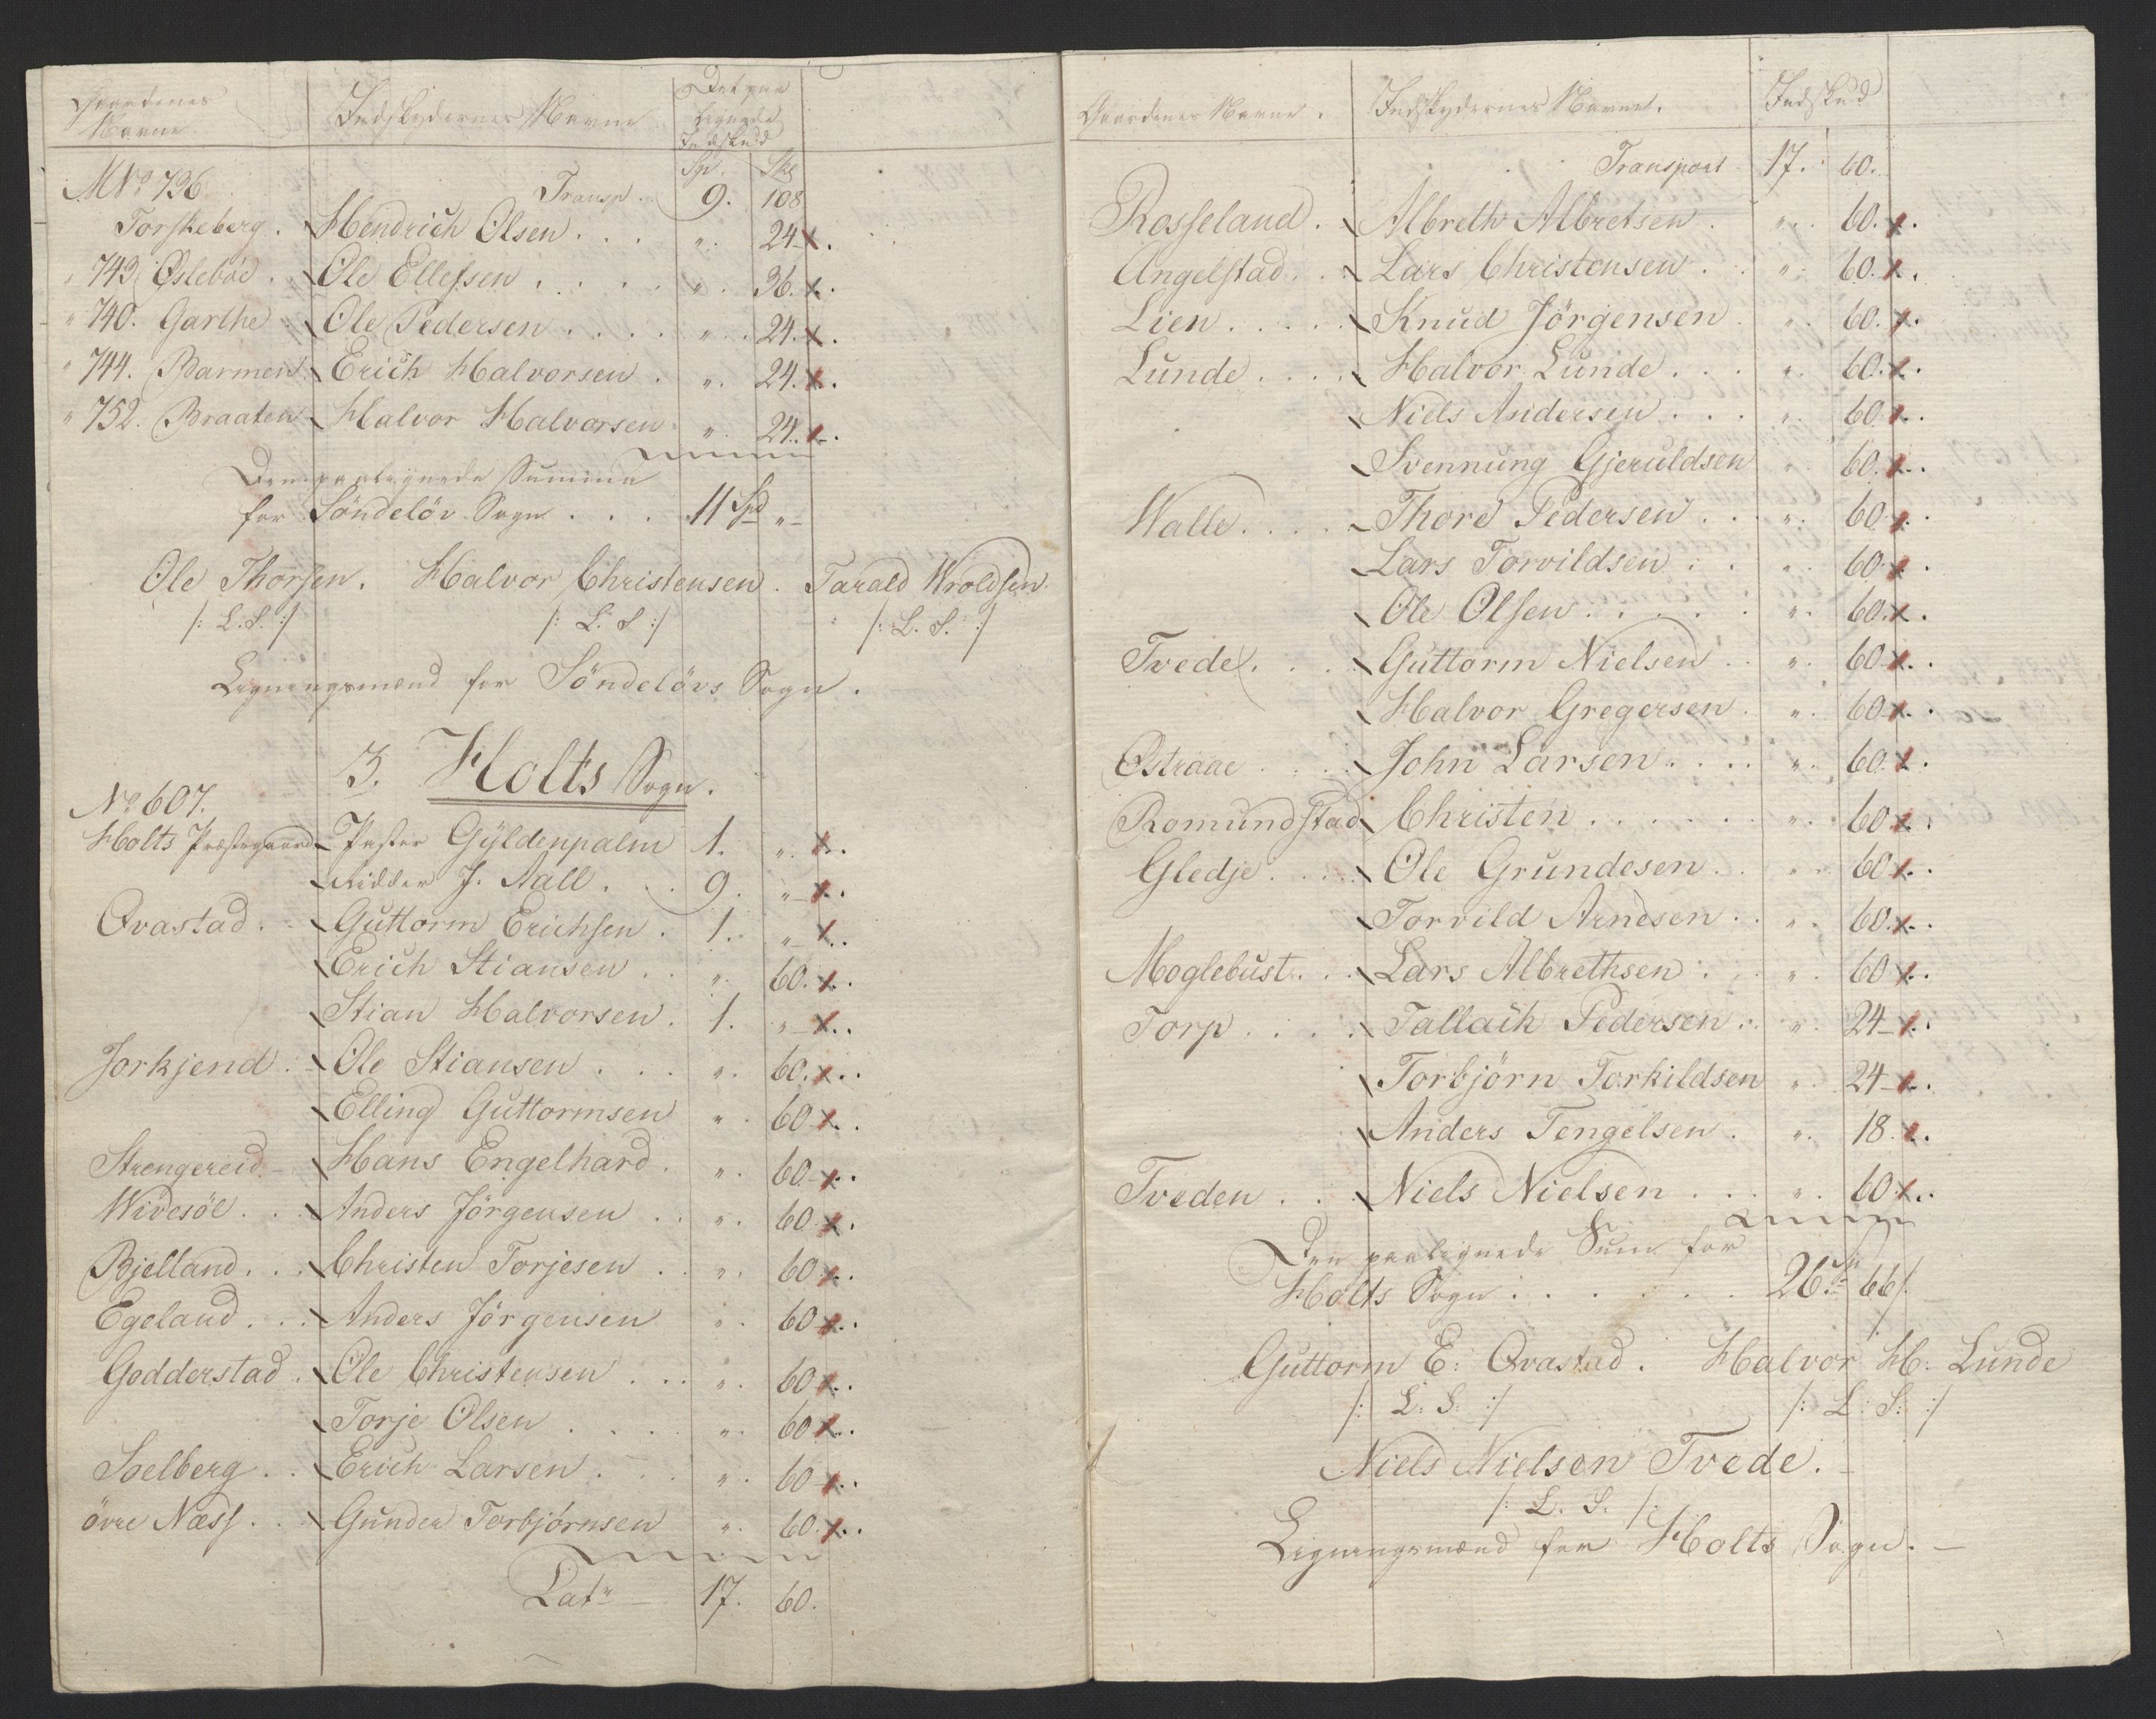 Gaardenes Navne. Indskydernes Navne Det paalignede Indskud
Sp. Sk
MNo 736. Transp. 9. 108
Torskeberg. Hendrich Olsen . . . „. 24 x.
„ 743. Øslebøe . Ole Ellefsen . . . . „. 36. x.
„ 740. Garthe . Ole Pedersen . . . . „. 24. x.
„ 744. Barmen. Erich Halvorsen . „. 24. x.
„ 752. Braaten Halvor Halvorsen „. 24. x.
Den paalignede Summa
for Söndelöv Sogn . . . 11 Spd „-
Ole Thorsen. Halvor Christensen. Tarald Wroldsen.
/: L.S. :/ /: L. S :/ /: L. S. :/
Ligningsmænd for Söndelövs Sogn.
3. Holts Sogn.
No 607.
Holts Præstegaard Pastor Gyldenpalm 1. „. x.
Ridder J. Aall . . 9. „ x.
Qvastad . Guttorm Erichsen . 1. „ x.
Erich Stiansen . . „. 60. x.
Stian Halvorsen . 1. „ x.
Jorkjend . Ole Stiansen . . . „. 60. x.
Elling Guttormsen „. 60 x.
Strengereid Hans Engelhard . „. 60 x.
Widesöe . . Anders Jörgensen . . „. 60 x.
Bjelland . . . Christen Torjesen . . „. 60 x.
Egeland . . . Anders Jörgensen „. 60 x.
Godderstad . Ole Christensen . . . „. 60 x.
Torje Olsen . . . . „. 60 x.
Soelberg . . Erich Larsen . . . „. 60 x.
övre Næss . . Gunder Torbjörnsen „. 60. x.
Latr 17. 60.
Gaardenes Navne. Indskydernes Navne. Indskud
Transport 17. 60.
Rosseland . Albreth Albretsen . „. 60. x.
Angelstad . . Lars Christensen . . „. 60. x.
Lien . . . . . Knud Jörgensen . „. 60. x.
Lunde . . . . Halvor Lunde . . . „. 60. x.
Niels Andersen . . . „. 60. x.
Svennung Gjeruldsen „. 60. x.
Walle . . . . Thore Pedersen . . „. 60. x.
Lars Torvildsen . . „. 60. x.
Ole Olsen . . . . . „. 60. x.
Tvede . . . . Guttorm Nielsen . . „. 60. x.
Halvor Gregersen . „. 60. x.
Østraae . . . . John Larsen . . . . „. 60. x.
Romundstad Christen . . . . . . „. 60 x.
Gledje . . . . . Ole Grundesen . . „. 60 x.
Torvild Arnesen . . „. 60. x.
Moglebust . . . Lars Albrethsen . . „. 60 x.
Torp . . . . . Tallach Pedersen . . „. 24 x.
Torbjörn Torkildsen „. 24 x.
Anders Tengelsen . „. 18. x.
Tveden . . . Niels Nielsen . . . „. 60 x.
Den paalignede Sum for
Holts Sogn . . . . . . 26 Sp 66/.
Guttorm E: Qvastad. Halvor H: Lunde
/: L: S: :/ /: L: S: :/
Niels Nielsen Tvede.
/: L. S. /:
Ligningsmænd for Holts Sogn. -